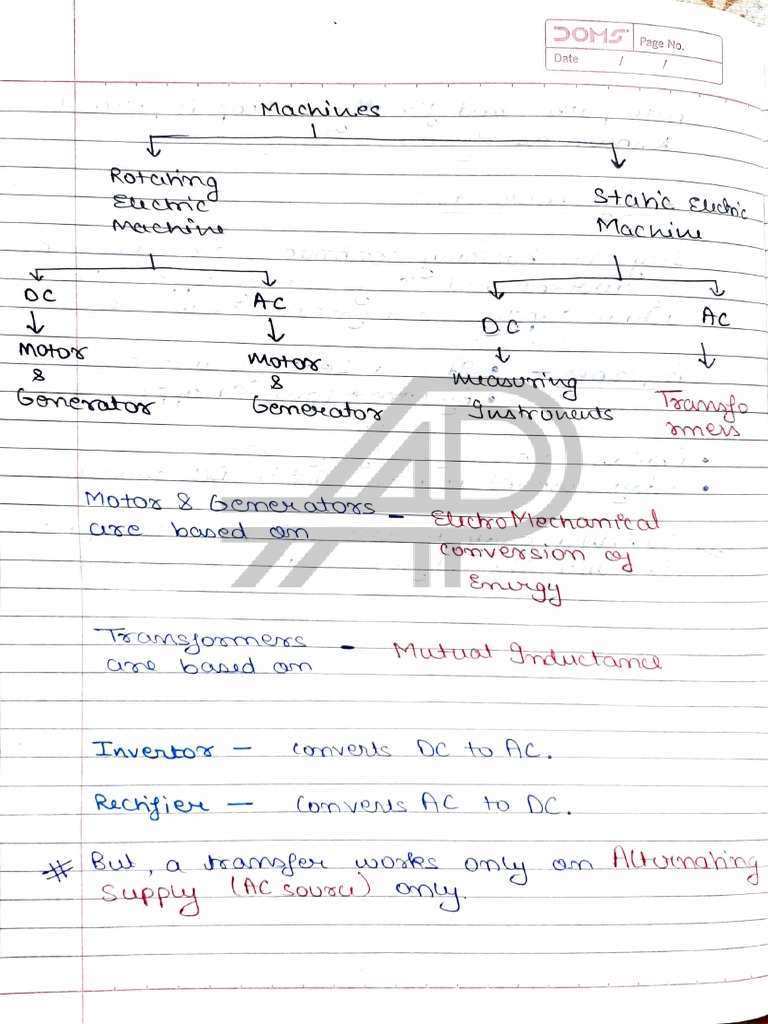 DOMS Page No.
Date / /
Machines
Rotating
Electric
Machine
Static Electric
Machine
DC
AC
DC
AC
Motor
&
Generator
Motor
&
Generator
Measuring
Instruments
Transfo
rmers
AP
Motor & Generators - ElectroMechanical
are based on
conversion of
Energy
Transformers - Mutual Inductance
are based on
Invertor - converts DC to AC.
Rectifier - Converts AC to DC.
# But, a transfer works only on Alternating
Supply (AC source) only.